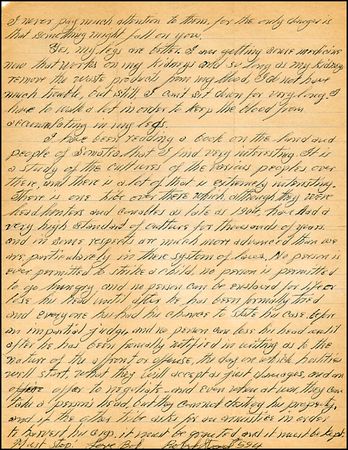 I never pay much attention to them, for the only danger is
that something might fall on you.
Yes, my legs are better. I am getting some medicine
now that works on my kidneys and so long as my kidneys
remove the waste products from my blood, I'd not have
much trouble, but still I can't sit down for very long. I
have to walk a lot in order to keep the blood from
accumulating in my legs.
I have been reading a book on the land and
people of Sumatra, that I find very interesting. It is
a study of the cultures of the various peoples over
there, and there is a lot of that is extremely interesting.
There is one tribe over there which although they were
head hunters and canables as late as 1906, have had a
very high standard of culture for thousands of years
and in some respects are much more advanced than we
are, particularly in there system of laws. No person is
ever permitted to strike a child, no person is permitted
to go hungry and no person can be enslaved for life or
lose his head until after he has been formally tried
and everyone has had his chance to state his case before
an impartial judge, and no person can lose his head until
after he has been formally notified in writing as to the
nature of the affront or offense, the day on which hostilities
will start, what they will accept as just damages, and an
offer to negotiate, and even when at war, they can
take a person's head, but they cannot destroy his property,
and if the other tribe asks for an armistice in order
to harvest his crop, it must be granted, and it must be kept.
Must stop. Love Bob
594